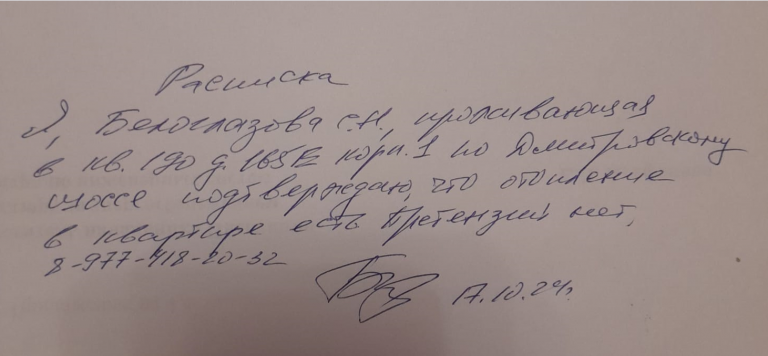 Расписка
Я, Белоглазова С.Н., проживающая
в кв. 190 д. 165Е корп. 1 по Дмитровскому
шоссе подтверждаю, что отопление
в квартире есть Претензий нет,
8-977-418-20-32
17.10.24г.